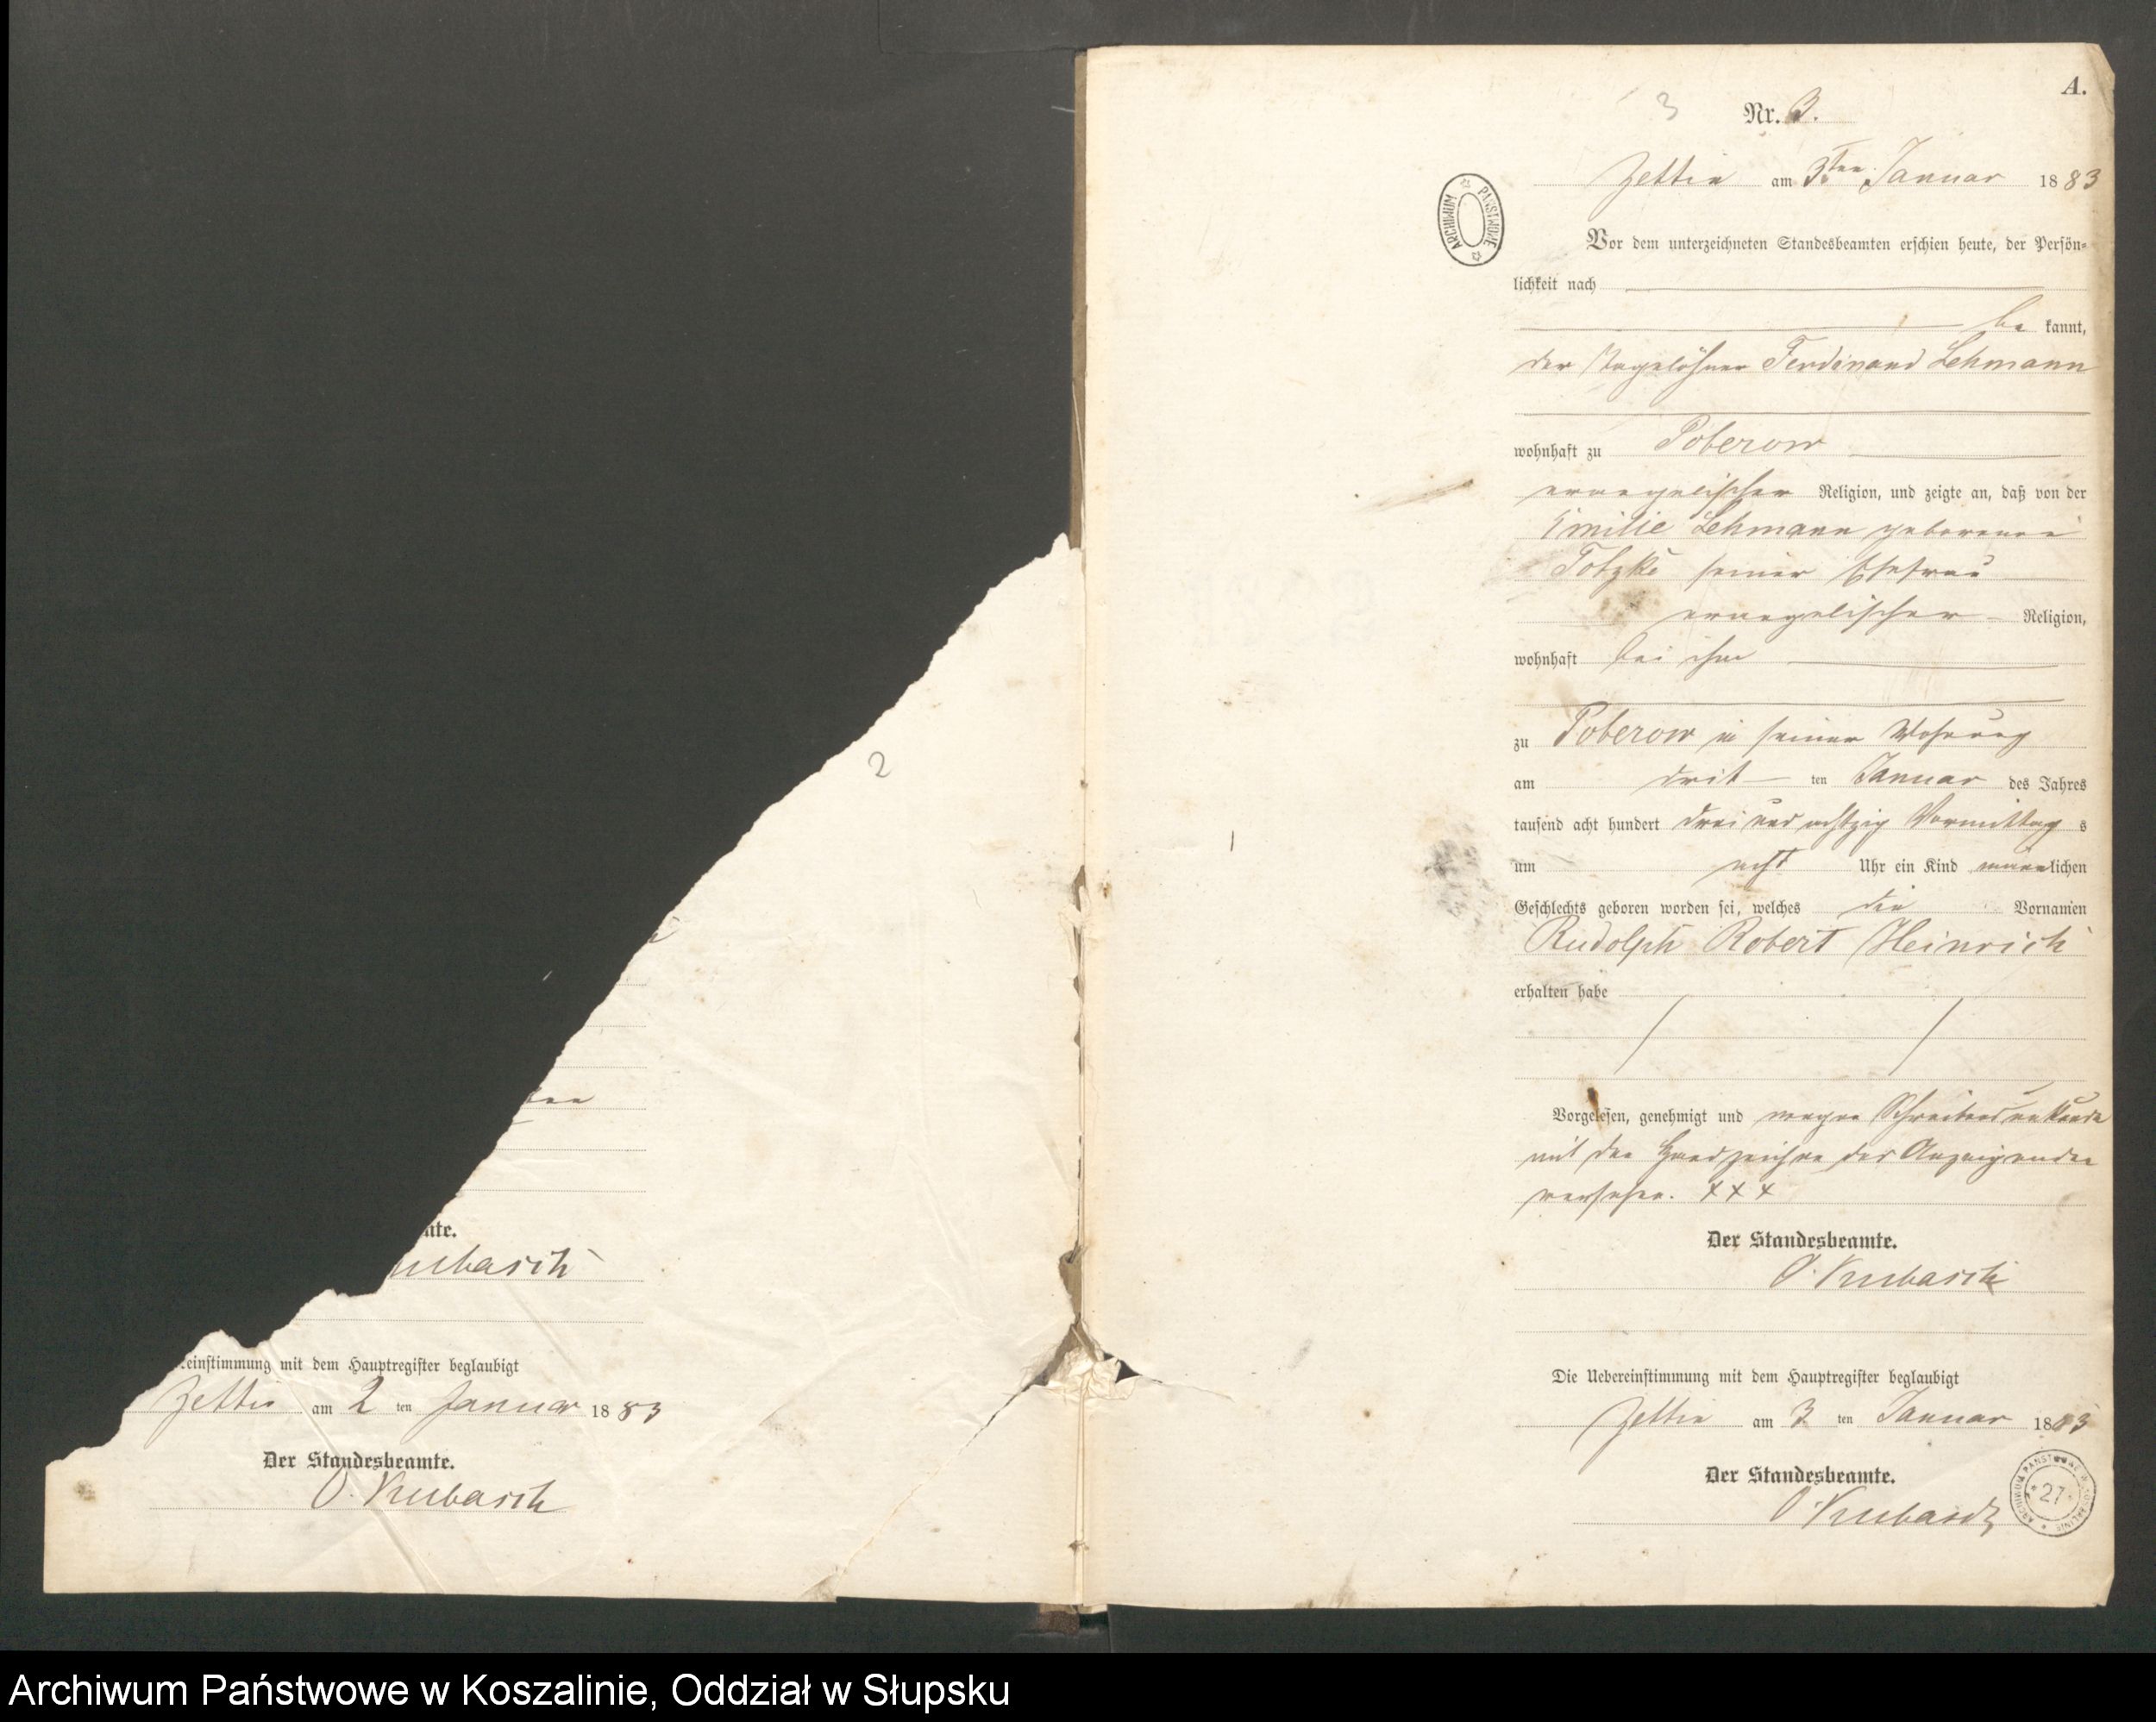 2
ten
mte.
ubasch
einstimmung mit dem Hauptregister beglaubigt
Zettin am 2 ten Januar 1883
Der Standesbeamte.
O. Kubasch
A.
3 Nr. 3.
Zettin am 3ten Januar 1883
ARCHIWUM PAŃSTWOWE
Vor dem unterzeichneten Standesbeamten erschien heute, der Persön-
lichkeit nach
be kannt,
der Tagelöhner Ferdinand Lehmann
wohnhaft zu Poberow
evangelischer Religion, und zeigte an, daß von der
Emilie Lehmann geborenen
seiner Ehefrau
evangelischer Religion,
wohnhaft bei ihm
zu Poberow in seiner Wohnung
am drit ten Januar des Jahres
tausend acht hundert drei und achtzig Vormittag s
um acht Uhr ein Kind männlichen
Geschlechts geboren worden sei, welches die Vornamen
Rudolph Robert Heinrich
erhalten habe
Vorgelesen, genehmigt und wegen Schreibensunkunde
mit den Handzeichen des Anzeigenden
versehen. XXX
Der Standesbeamte.
O. Kubasch
Die Uebereinstimmung mit dem Hauptregister beglaubigt
Zettin am 3 ten Januar 1883
Der Standesbeamte.
O. Kubasch
27
Archiwum Państwowe w Koszalinie, Oddział w Słupsku